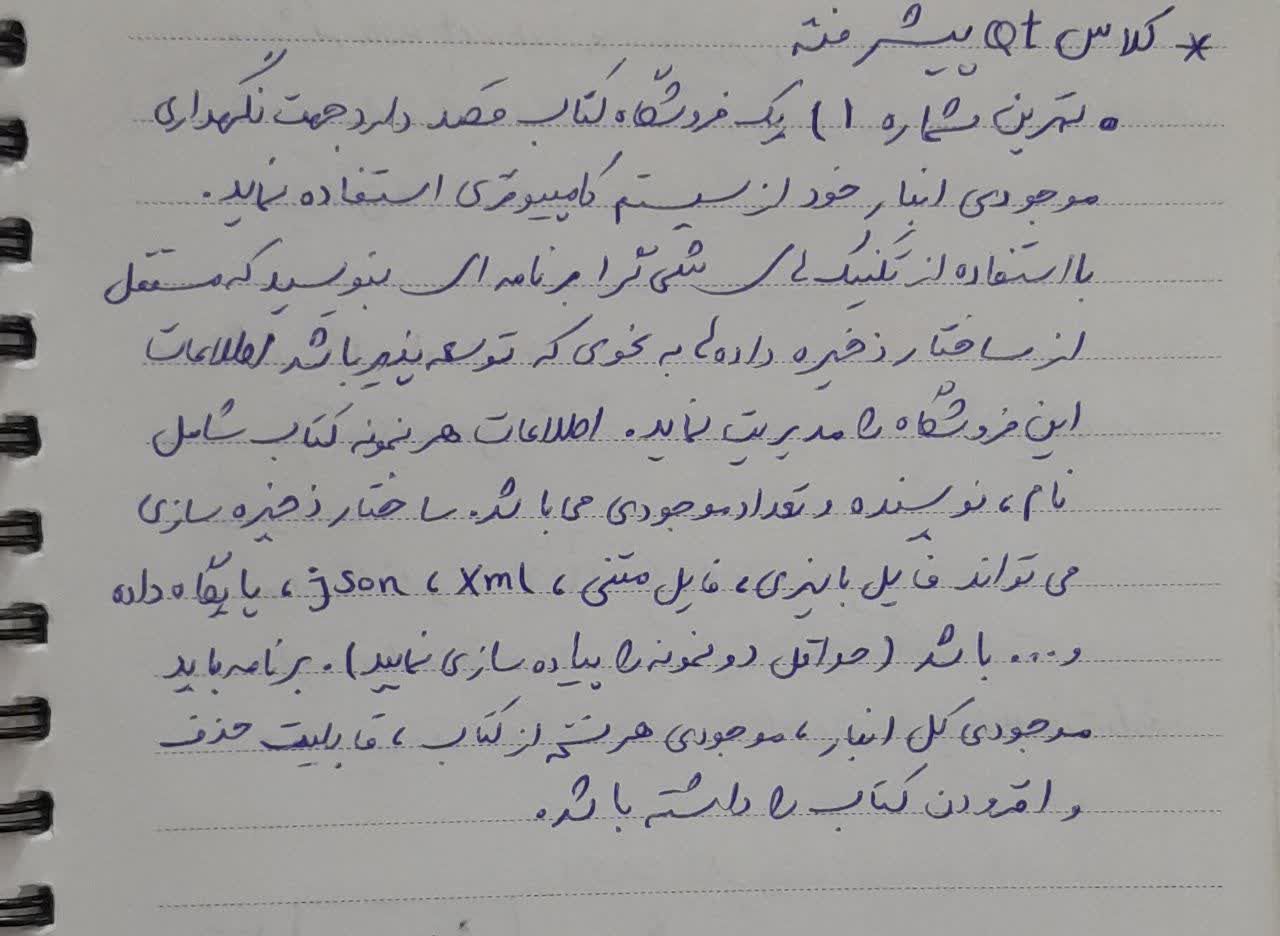 * کلاس Qt پیشرفته
• تمرین شماره ۱) یک فروشگاه کتاب قصد دارد جهت نگهداری
موجودی انبار خود از سیستم کامپیوتری استفاده نماید.
با استفاده از تکنیک های شی گرا برنامه ای بنویسید که مستقل
از ساختار ذخیره داده ها به نحوی که توسعه پذیر باشد اطلاعات
این فروشگاه را مدیریت نماید. اطلاعات هر نمونه کتاب شامل
نام، نویسنده و تعداد موجودی می باشد. ساختار ذخیره سازی
می تواند فایل باینری، فایل متنی، json ، xml، پایگاه داده
و... باشد (حداقل دو نمونه را پیاده سازی نمایید). برنامه باید
موجودی کل انبار، موجودی هر نسخه از کتاب، قابلیت حذف
و افزودن کتاب را داشته باشد.